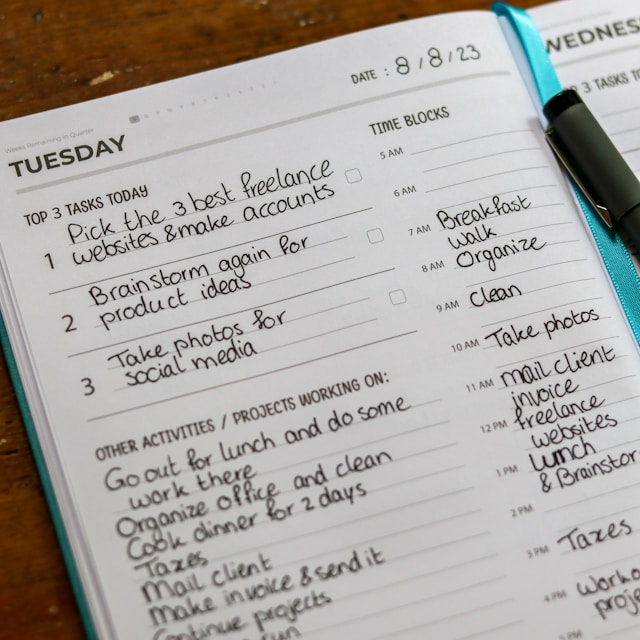 Weeks Remaining in Quarter
TUESDAY
DATE : 8/8/23
TOP 3 TASKS TODAY
1 Pick the 3 best freelance
websites & make accounts
2 Brainstorm again for
product ideas
3 Take photos for
social media
OTHER ACTIVITIES / PROJECTS WORKING ON:
Go out for lunch and do some
work there
Organize office and clean
Cook dinner for 2 days
Taxes
Mail client
Make invoice & send it
Continue projects
fun
TIME BLOCKS
5 AM
6 AM
7 AM Breakfast
walk
8 AM Organize
9 AM clean
10 AM Take photos
11 AM mail client
invoice
12 PM freelance
websites
1 PM Lunch
& Brainstor
2 PM
3 PM Taxes
4 PM work o
proje
WEDNES
3 TASKS T